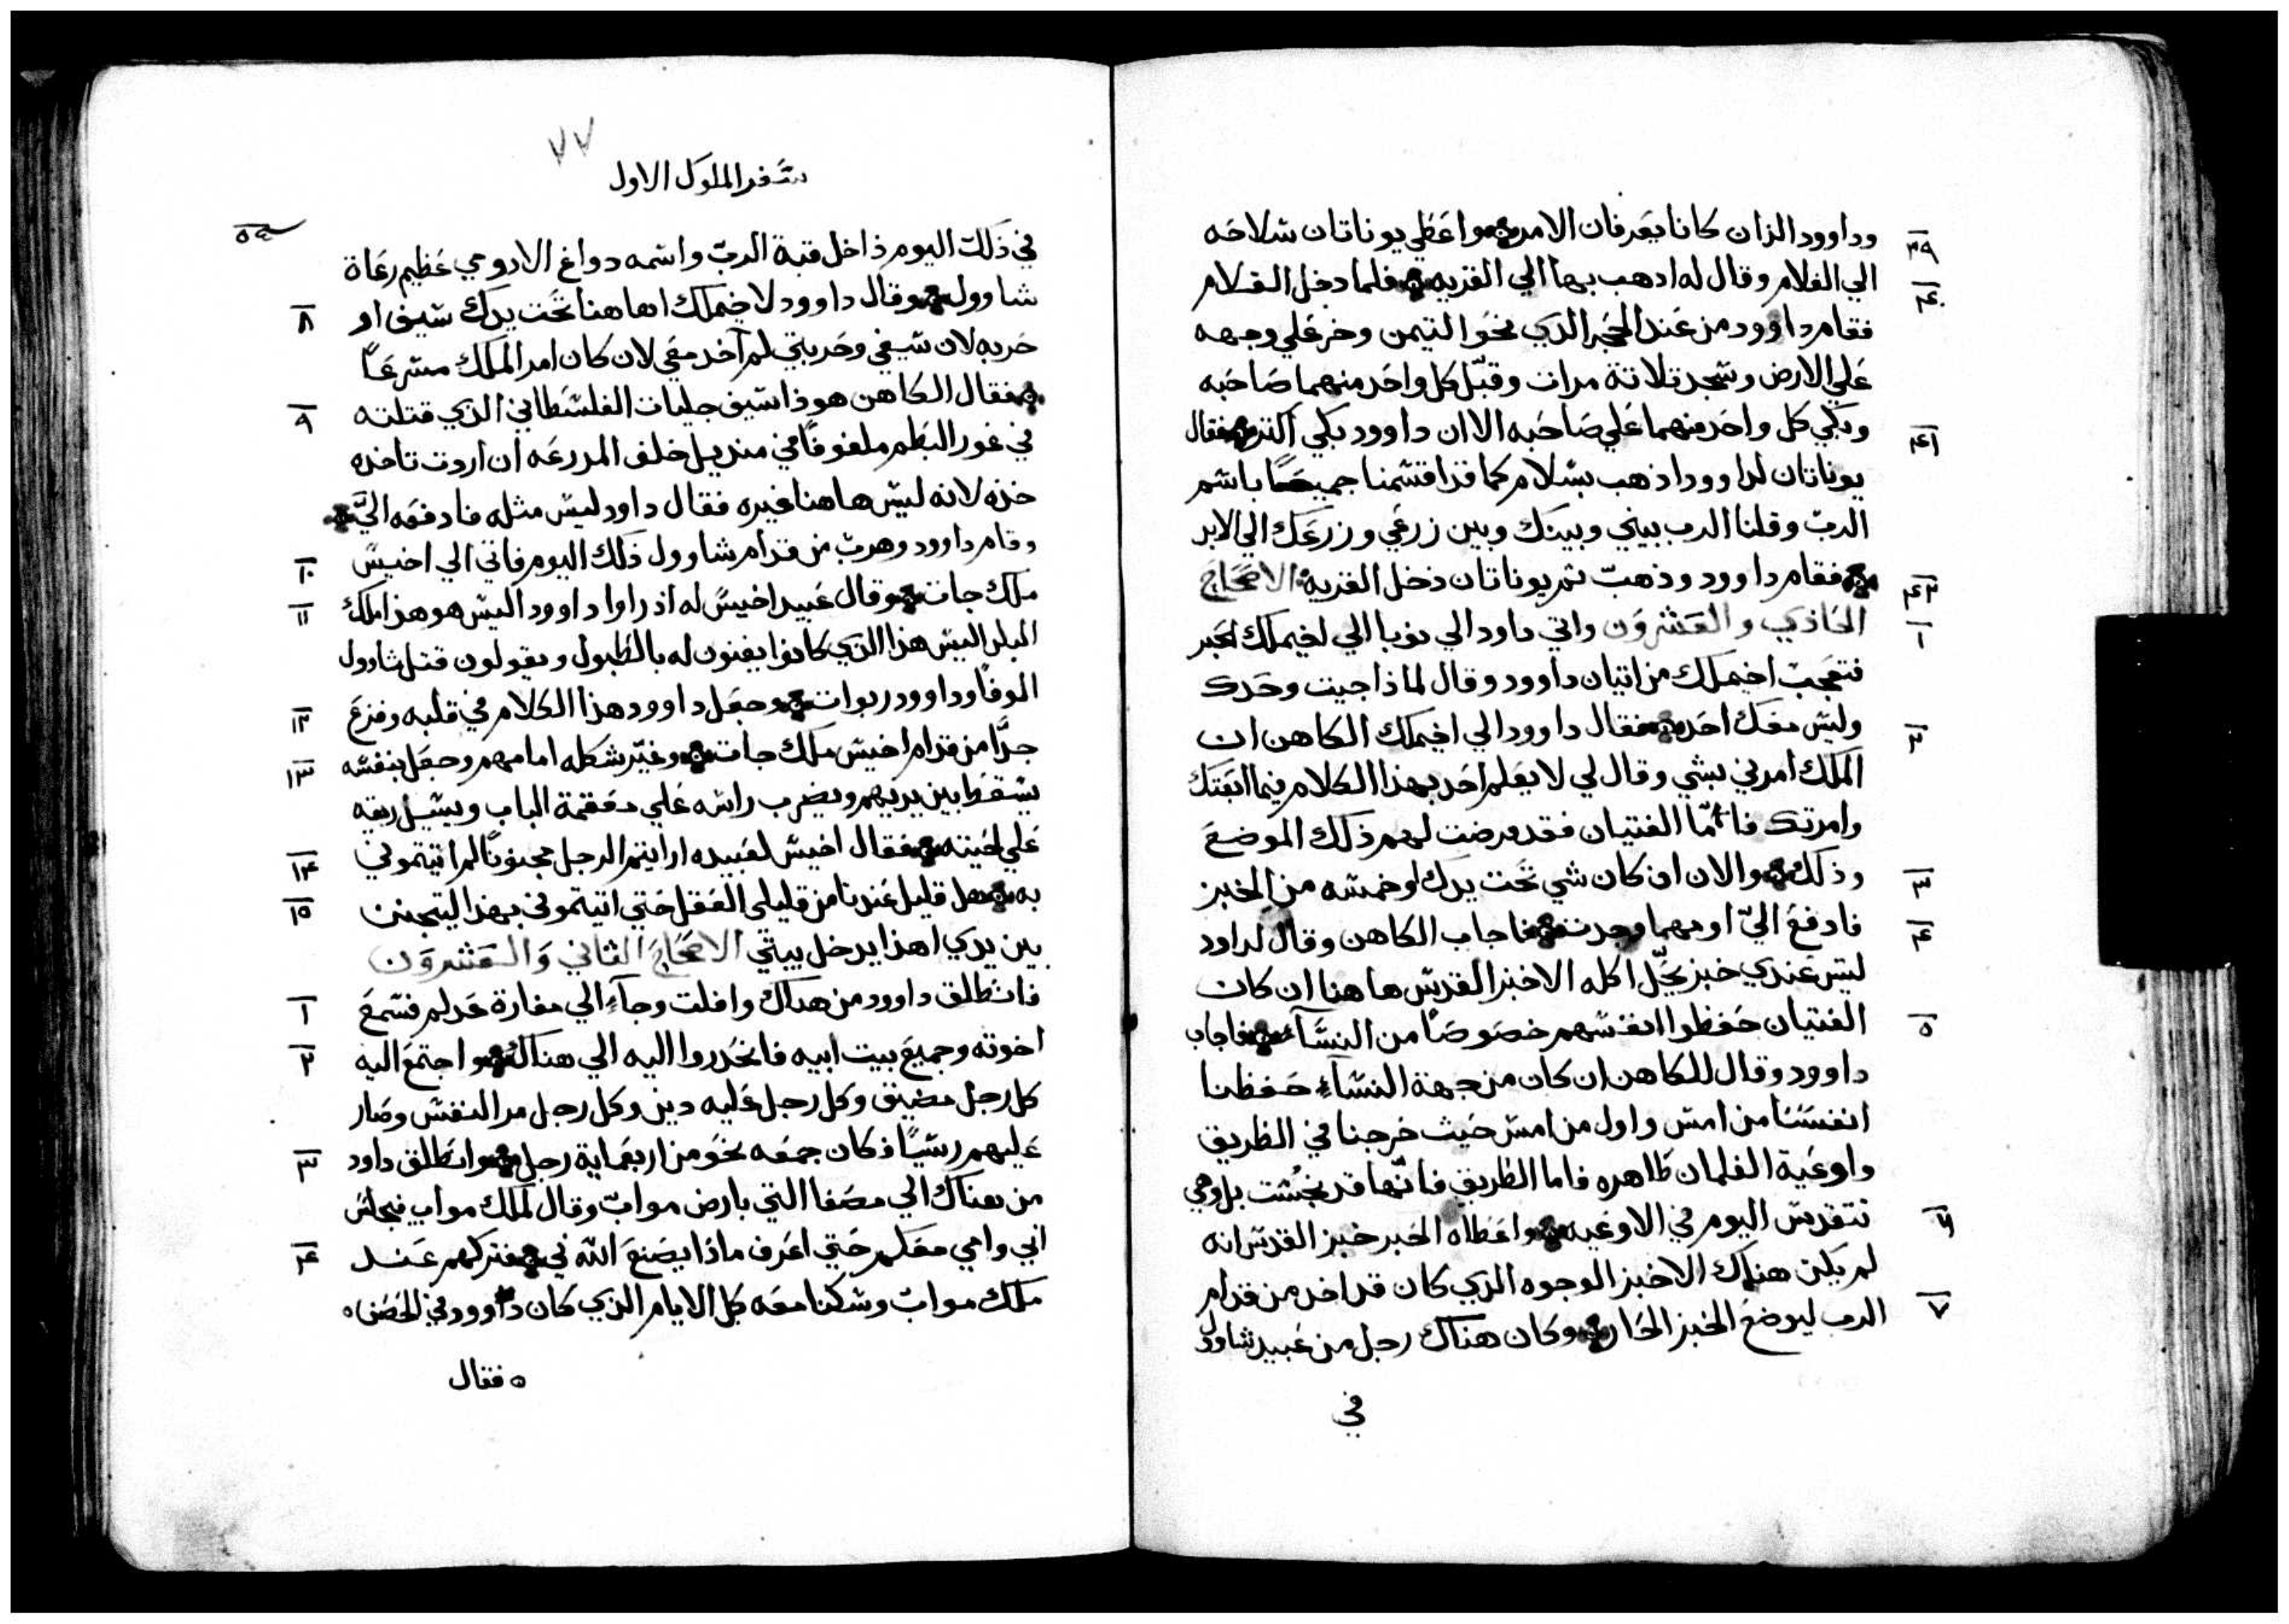 وداوود الزان كانا يعرفان الامر واعطي يوناتان سلاحه
٣٩
الي الغلام وقال له ادهب بها الي القريه فلما دخل الغلام
٤٠
فقام داوود من عند الحجر الدي نحو التيمن وخر علي وجهه
علي الارض وسجد تلاتة مرات وقبّل كل واحد منهما صاحبه
وبكي كل واحد منهما علي صاحبه الا ان داوود بكي اكتر فقال
٤١
يوناتان لداوود اذهب بسلام كما قد اقسمنا جميعًا باسم
الربّ وقلنا الرب بيني وبينك وبين زرعي وزرعك الي الابد
فقام داوود وذهبّ تم يوناتان دخل القرية الاصحاح
٤٢
الحاذي والعشرون واتي داود الي نوبا الي اخيملك الحبر
١
فتعجبّ اخيملك من اتيان داوود وقال لماذا جيت وحدك
وليس معك احد فقال داوود الي اخيملك الكاهن ان
٢
الملك امرني بشي وقال لي لا يعلم احد بهذا الكلام فيما ابعتك
وامرتك فامّا الفتيان فقد فرضت لهم ذلك الموضع
وذلك والان ان كان شي تحت يدك او خمسه من الخبز
٣
فادفع اليّ او مهما وجدت فاجاب الكاهن وقال لداود
٤
ليس عندي خبز يحّل اكله الا خبز القدس هاهنا ان كان
الفتيان حفظوا انفسهم خصوصًا من النسآء فاجاب
٥
داوود وقال للكاهن ان كان من جهة النسآء حفظنا
انفسنا من امس واول من امس حيث خرجنا في الطريق
واوعية الغلمان طاهره فاما الطريق فانّها قد نجست بل وهي
تتقدس اليوم في الاوعيه واعطاه الحبر خبز القدس انه
٦
لم يكن هناك الا خبز الوجوه الزي كان قد اخد من قدام
الرب ليوضع الخبز الحار وكان هناك رجل من عبيد شاوول
٧
في
٧٧
سفر الملوك الاول
في ذلك اليوم ذاخل قبة الربّ واسمه دواغ الادومي عظيم رعاة
شاوول وقال داوود لاخيملك اها هنا تحت يدك سيف او
٨
حربه لان سيفي وحربتي لم آخد معي لان كان امر الملك مسرعًا
فقال الكاهن هوذا سيف جليات الفلسطاني الزي قتلته
٩
في غور البطم ملفوفًا في منديل خلف المدرعه ان اردت تاخده
خذه لانه ليس هاهنا غيره فقال داود ليس مثله فادفعه اليَّ
وقام داوود وهربّ من قدام شاوول ذلك اليوم فاتي الي اخيس
١٠
ملك جات وقال عبيد اخيس له اذ راوا داوود اليس هو هذا ملك
١١
البلد اليس هذا الزي كانوا يغنون له بالطبول ويقولون قتل شاوول
الوفًا وداوود ربوات وجعل داوود هذا الكلام في قلبه وفزع
١٢
جدًّا من قدام اخيس ملك جات وغيّر شكله امامهم وجعل بنفسه
١٣
يسقط بين يديهم ويضرب راسه علي دفقتة الباب ويسيل ريقه
علي لحيته فقال اخيس لعبيده ارايتم الرجل مجنونًا لم اتيتموني
١٤
به هل قليل عندنا من قليلي العقل حتي اتيتموني بهذا ليتجنن
١٥
بين يدي اهذا يدخل بيتي الاصحاح الثاني والعشرون
فانطالق داوود من هناك وافلت وجآء الي مغارة عدلم فسمع
١
اخوته وجميع بيت ابيه فانحدروا اليه الي هناك واجتمع اليه
٢
كل رجل مضيق وكل رجل عليه دين وكل رجل مر النفس وصار
عليهم رسيًا فكان جمعه نحو من اربعماية رجل وانطلق داود
٣
من هناك الي مصفا التي بارض موابّ وقال لملك مواب فيجلس
ابي وامي معكم حتي اعرف ماذا يصنع الله لي فتركهم عند
٤
ملك موابّ وسكنا معه كل الايام الزي كان داوود في الحصن
فقال